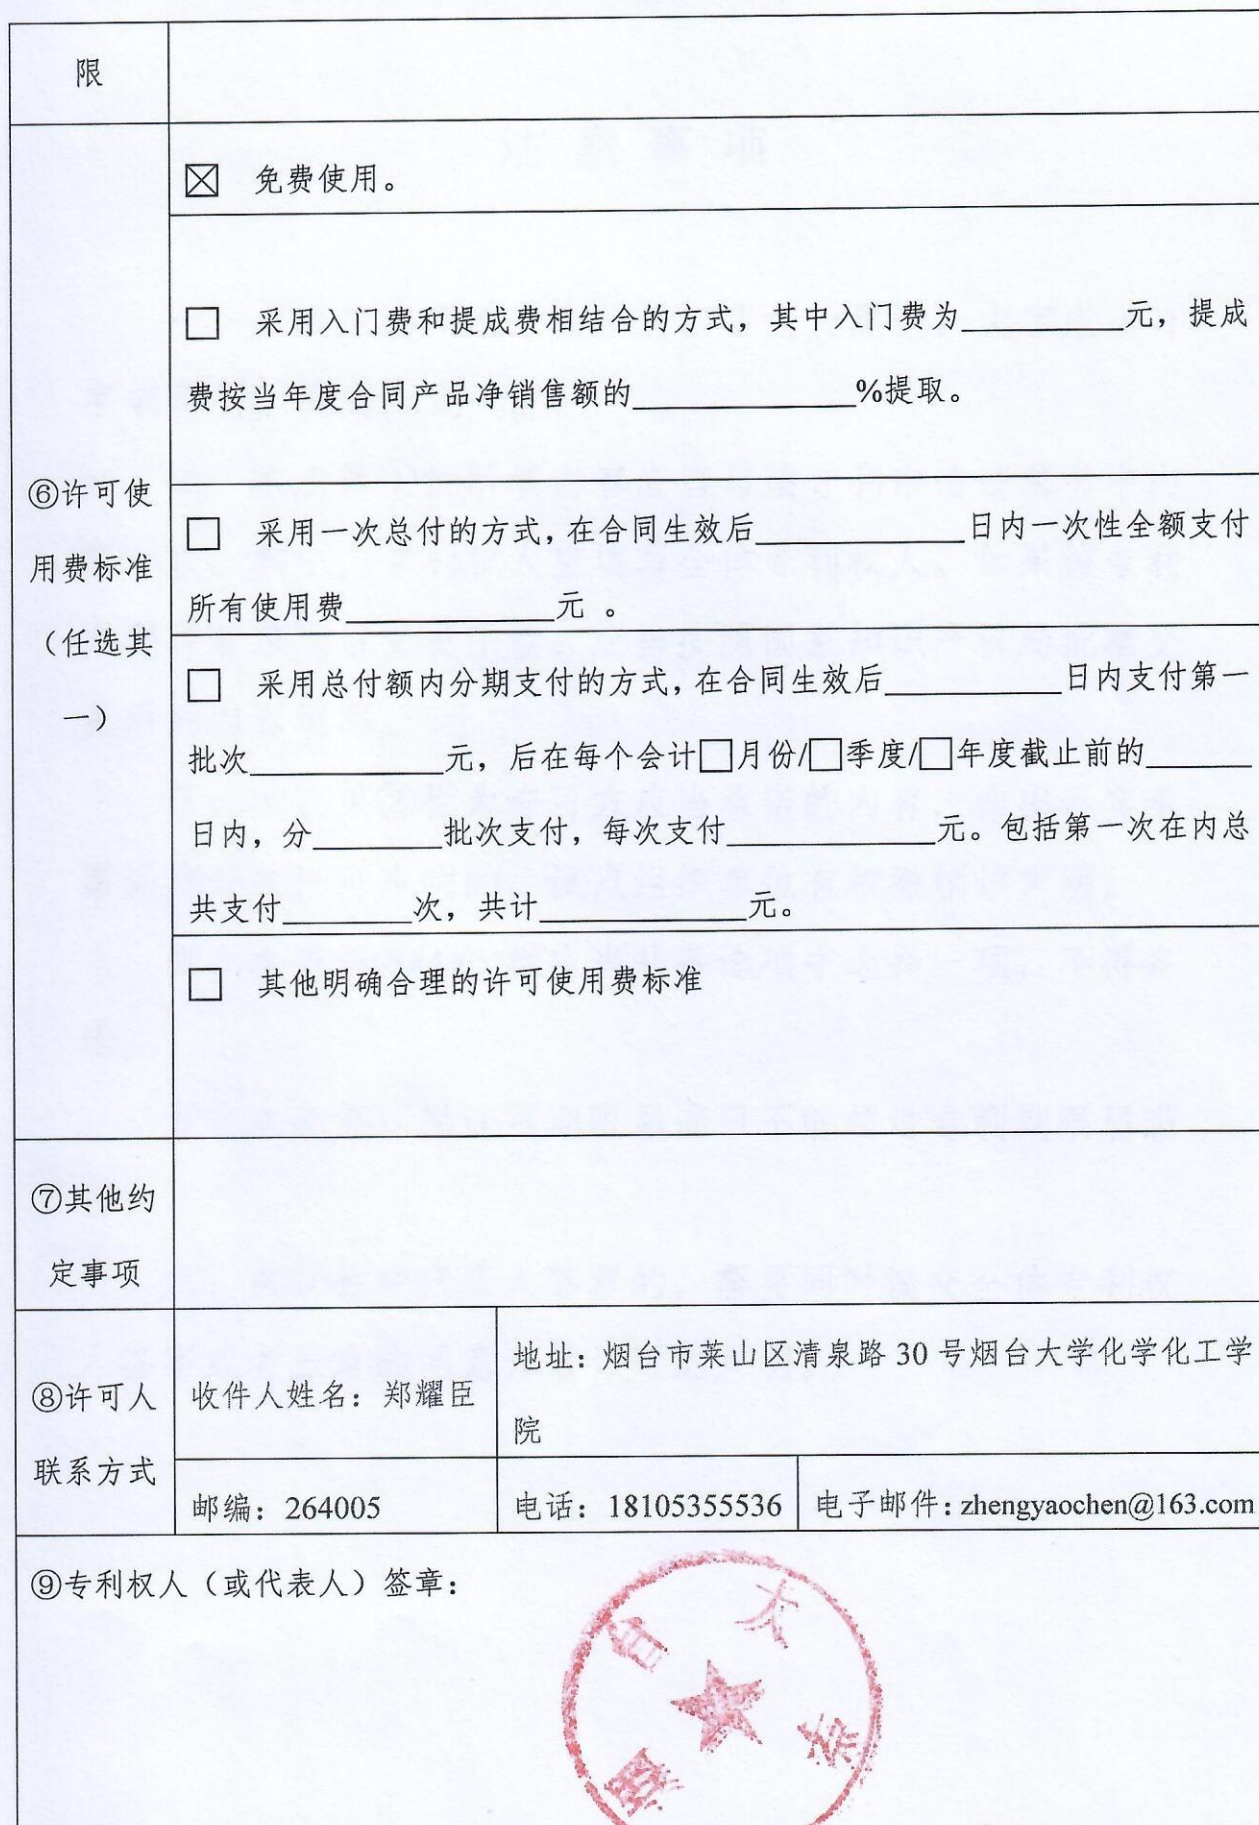 限
☒ 免费使用。
□ 采用入门费和提成费相结合的方式，其中入门费为__________元，提成
费按当年度合同产品净销售额的______________%提取。
⑥许可使
用费标准
（任选其
一）
□ 采用一次总付的方式，在合同生效后_____________日内一次性全额支付
所有使用费_____________元 。
□ 采用总付额内分期支付的方式，在合同生效后___________日内支付第一
批次____________元，后在每个会计□月份/□季度/□年度截止前的______
日内，分________批次支付，每次支付_____________元。包括第一次在内总
共支付________次，共计_____________元。
□ 其他明确合理的许可使用费标准
⑦其他约
定事项
⑧许可人
联系方式
收件人姓名：郑耀臣
地址：烟台市莱山区清泉路 30 号烟台大学化学化工学
院
邮编：264005
电话：18105355536
电子邮件：zhengyaochen@163.com
⑨专利权人（或代表人）签章：
烟台大学